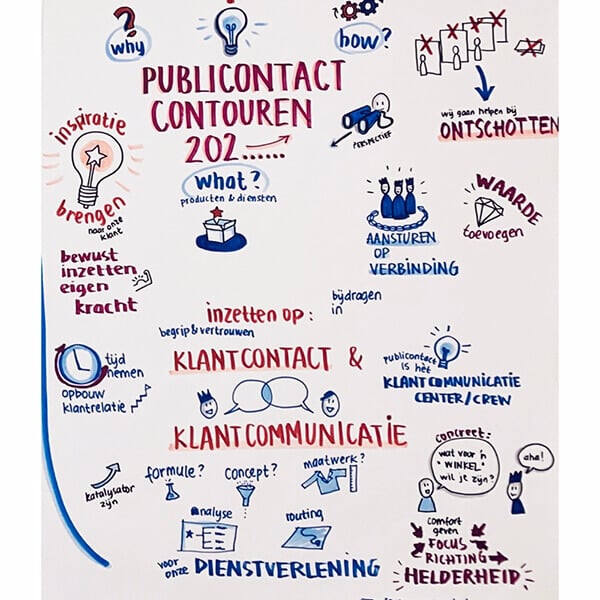 why
how?
PUBLICONTACT
CONTOUREN
202......
PERSPECTIEF
wij gaan helpen bij
ONTSCHOTTEN
inspiratie
brengen
naar onze
klant
What?
producten & diensten
AANSTUREN
OP
VERBINDING
WAARDE
toevoegen
bewust
inzetten
eigen
kracht
bijdragen
in
inzetten op:
begrip & vertrouwen
KLANTCONTACT &
KLANTCOMMUNICATIE
tijd
nemen
opbouw
klantrelatie
publicontact
is hèt
KLANTCOMMUNICATIE
CENTER/CREW
katalysator
zijn
formule?
concept?
maatwerk?
analyse
routing
voor
onze DIENSTVERLENING
concreet:
wat voor 'n
"WINKEL"
wil je zijn?
aha!
comfort
geven
FOCUS
RICHTING
HELDERHEID